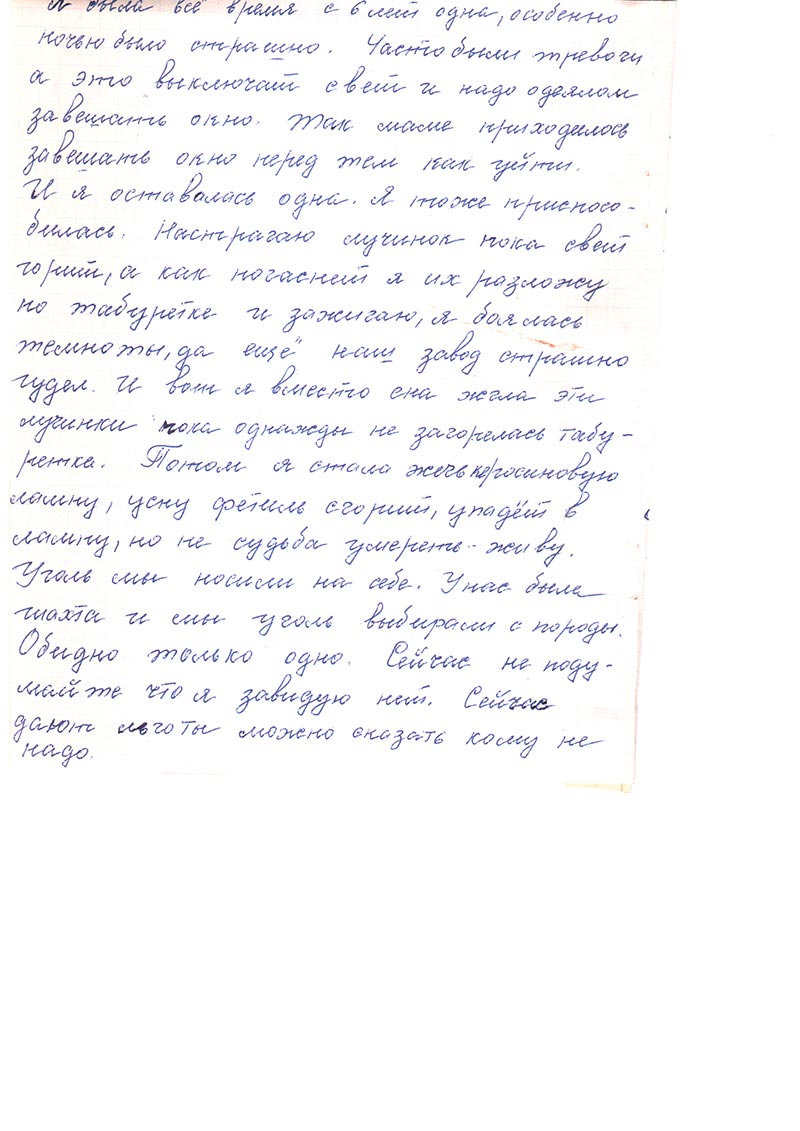 Я была всё время с 6 лет одна, особенно
ночью было страшно. Часто были тревоги
а это выключат свет и надо одеялом
завешать окно. Так маме приходилось
завешать окно перед тем как уйти.
И я оставалась одна. Я тоже приспосо-
билась. Настрагаю лучинок пока свет
горит, а как погаснет я их разложу
но табуретке и зажигаю, я боялась
темноты, да ещё наш завод страшно
гудел. И вот я вместо сна жгла эти
лучинки пока однажды не загорелась табу-
ретка. Потом я стала жечь керосиновую
лампу, усну фетиль сгорит, упадёт в
лампу, но не судьба умереть - живу.
Уголь мы носили на себе. У нас была
шахта и мы уголь выбирали с породы.
Обидно только одно. Сейчас не поду-
май же что я завидую нет. Сейчас
дают льготы можно сказать кому не
надо.